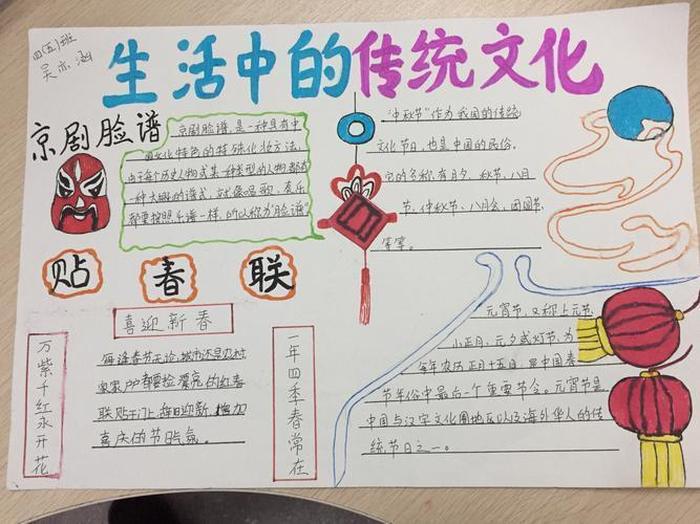 四(五)班
吴亦涵
生活中的传统文化
京剧脸谱
京剧脸谱,是一种具有中
国文化特色的特殊化妆方法。
由于每个历史人物或某一种类型的人物都有
一种大概的谱式,就像唱歌、奏乐
都要按照乐谱一样,所以称为"脸谱"
"中秋节"作为我国的传统
文化节日,也是中国的民俗。
它的名称有月夕、秋节、八月
节、仲秋节、八月会、团圆节
等等。
贴春联
喜迎新春
万紫千红永开花
一年四季春常在
每逢春节无论城市还是农村
家家户户都要检漂亮的红春
联贴于门上,辞旧迎新,增加
喜庆的节日气氛。
元宵节,又称上元节、
小正月、元夕或灯节,为
每年农历正月十五日,是中国春
节年俗中最后一个重要节令。元宵节是
中国与汉字文化圈地区以及海外华人的传
统节日之一。